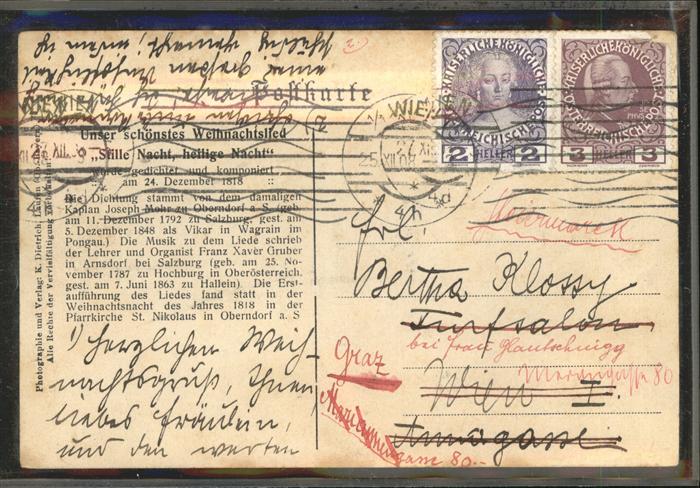 2.)
Postkarte
Unser schönstes Weihnachtslied
„Stille Nacht, heilige Nacht“
wurde gedichtet und komponiert
am 24. Dezember 1818
Die Dichtung stammt von dem damaligen
Kaplan Joseph Mohr zu Oberndorf a S (geb.
am 11. Dezember 1792 zu Salzburg, gest. am
5. Dezember 1848 als Vikar in Wagrain im
Pongau.) Die Musik zu dem Liede schrieb
der Lehrer und Organist Franz Xaver Gruber
in Arnsdorf bei Salzburg (geb. am 25. No-
vember 1787 zu Hochburg in Oberösterreich,
gest. am 7. Juni 1863 zu Hallein). Die Erst-
aufführung des Liedes fand statt in der
Weihnachtsnacht des Jahres 1818 in der
Pfarrkirche St. Nikolaus in Oberndorf a. S
1) Herzlichen Weih-
nachtsgruß, Ihnen,
liebes Fräulein,
und den werten
Photographie und Verlag: K. Dietrich,
Alle Rechte der Vervielfältigung
KAISERLICHE KÖNIGLICHE
ÖSTERREICHISCHE POST
2 HELLER 2
KAISERLICHE KÖNIGLICHE
ÖSTERREICHISCHE POST
3 HELLER 3
WIEN
XII 08
Frl.
Steiermark
Bertha Klossy
Turfsalon
bei Frau Glautschnigg
Graz
Merangasse 80
Wien I.
Annagasse
gasse 80.-